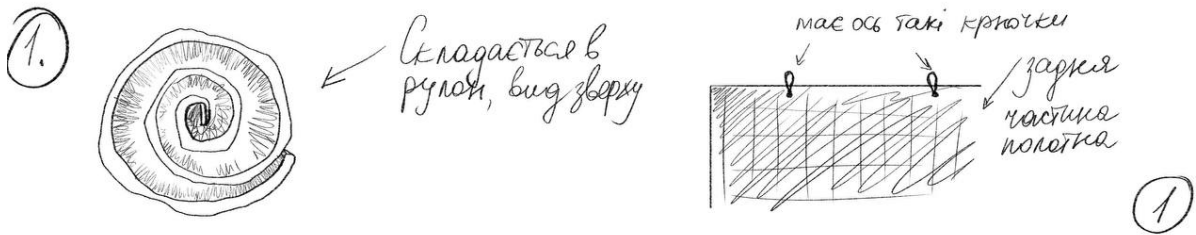 1.
Складається в
рулон, вид зверху
має ось такі крючки
задня
частина
полотна
1